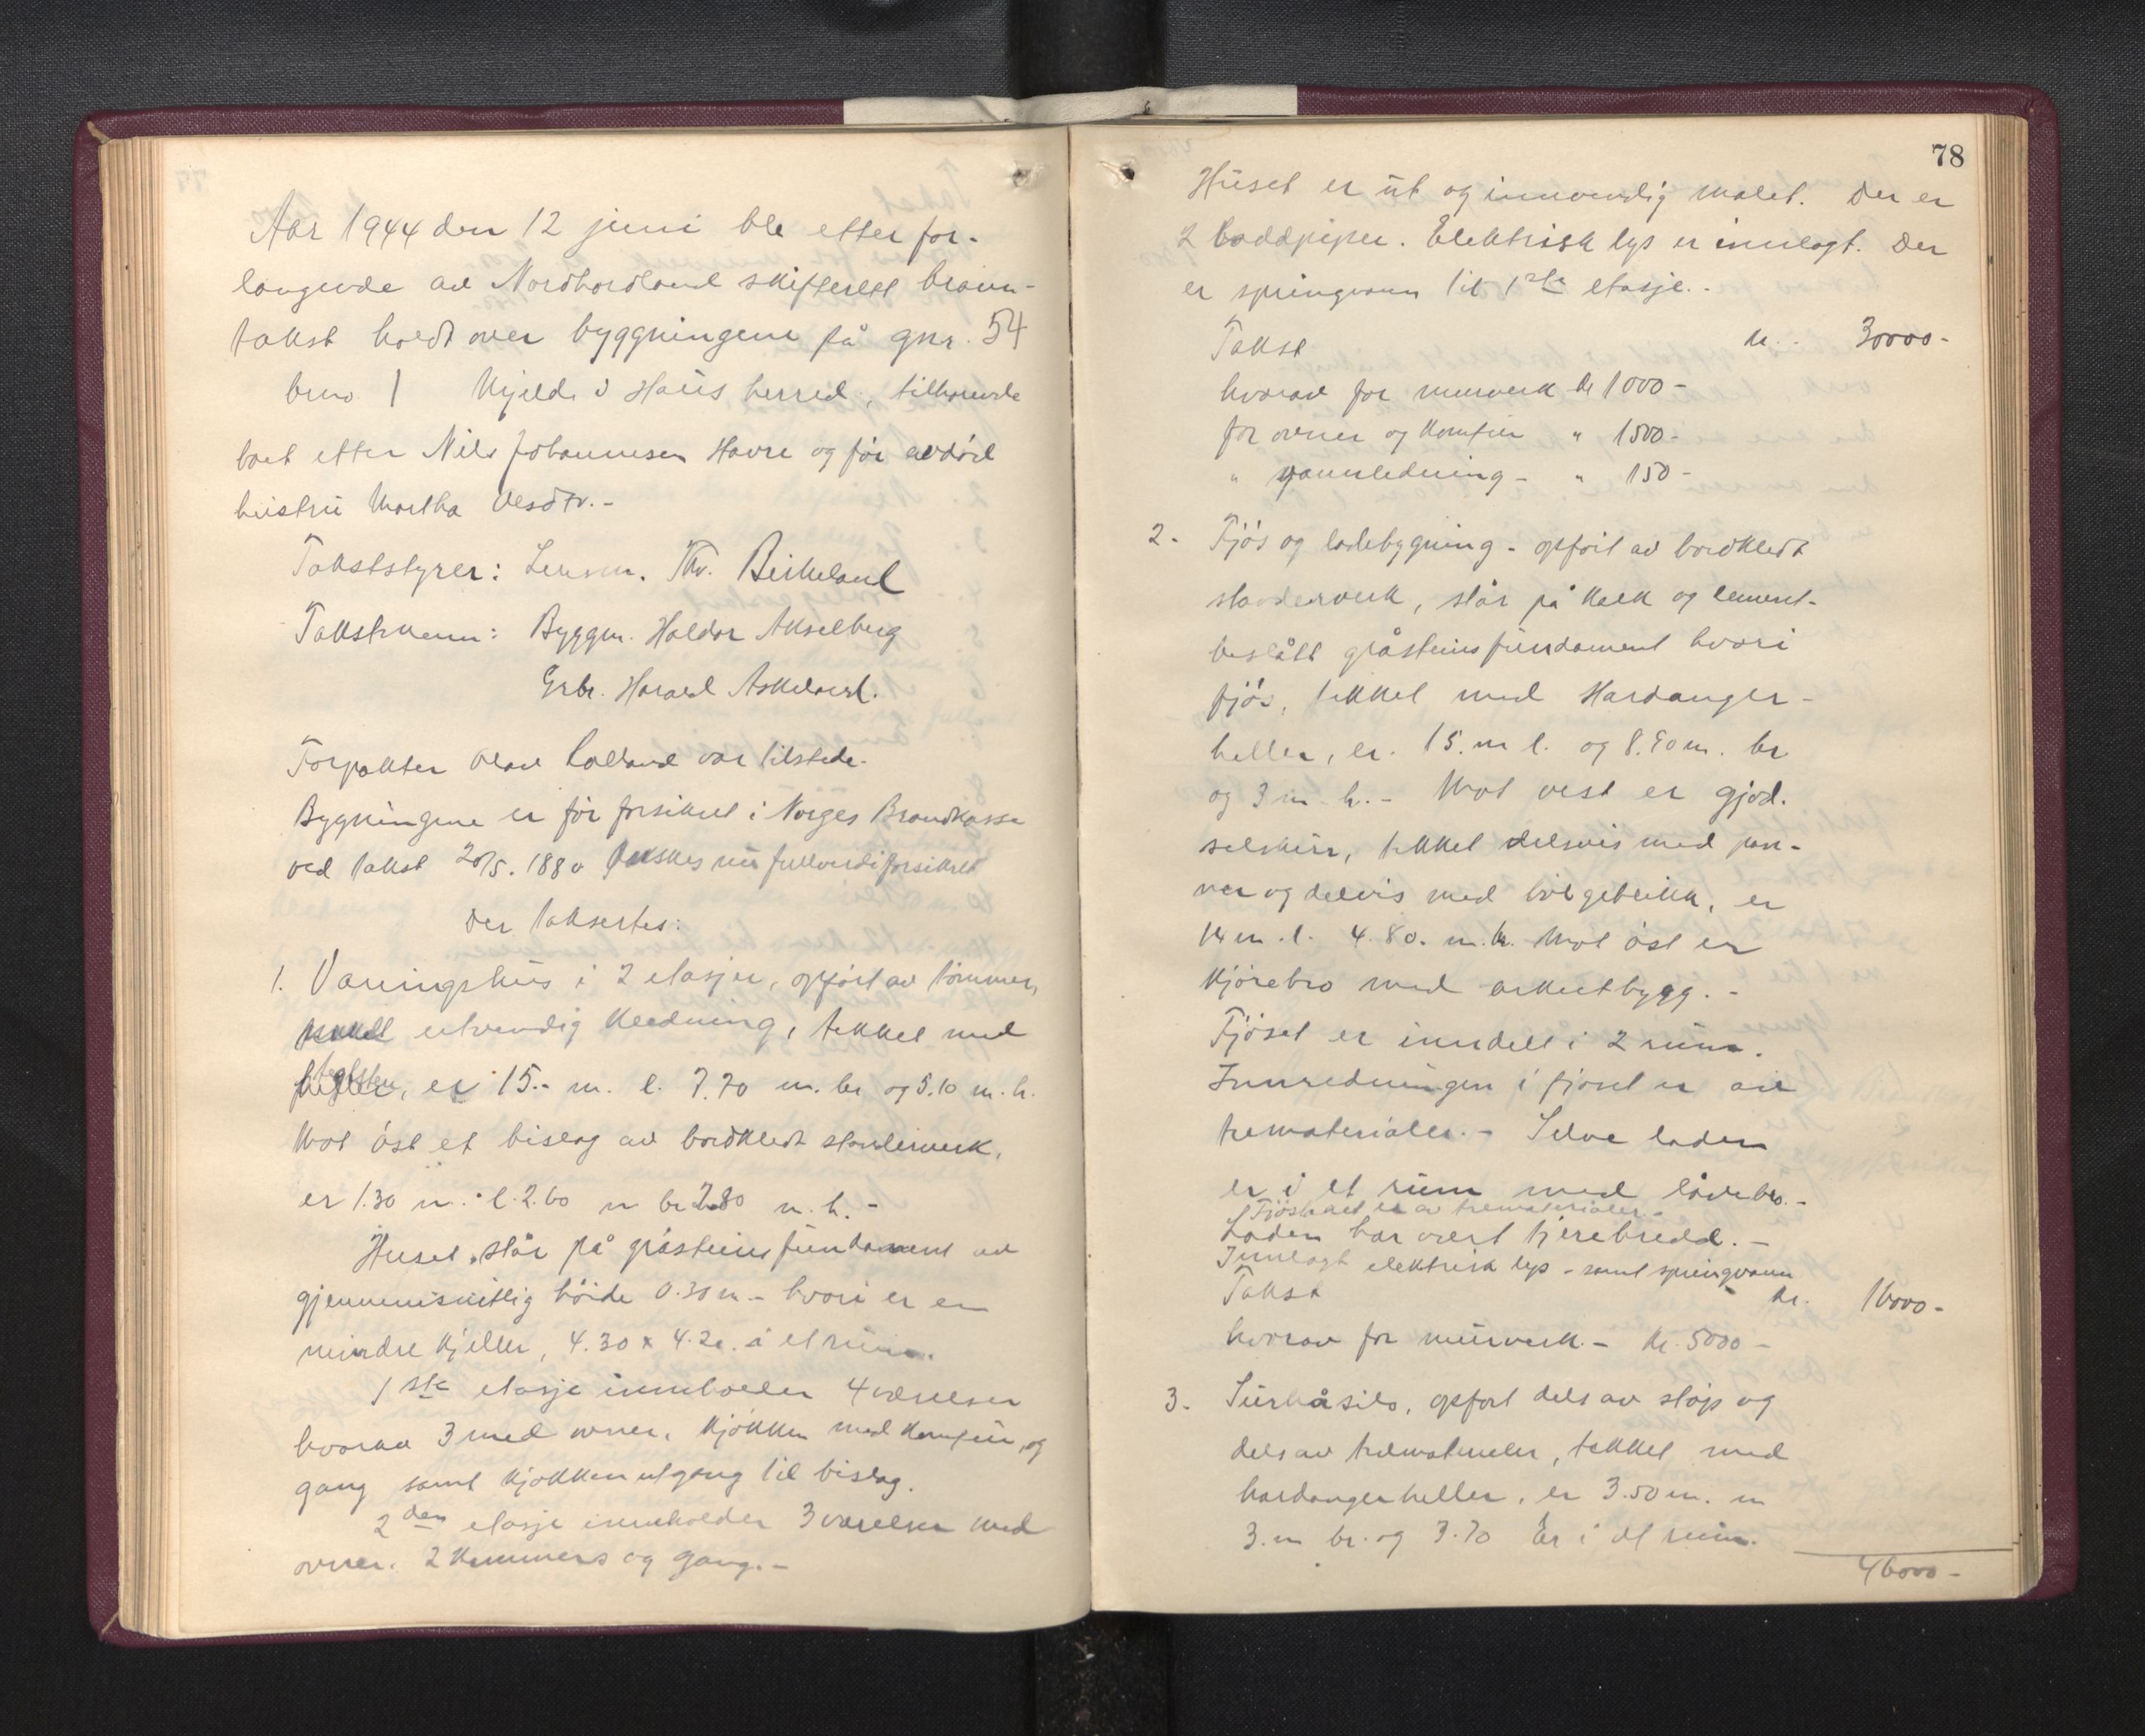 Aar 1944 den 12 juni ble etter for-
langende av Nordhordland skifterett brann-
takst holdt over byggningene på gnr. 54
bno 1 Kjelde i Haus herred, tilhørende
boet etter Nils Johannesen Havre og før avdød
hustru Martha Olesdtr.-
Takststyrer: Lensm. Thv. Birkeland
Takstmenn: Byggm. Haldor Akselberg
Grbr. Harald Askeland.
Forpakter Olav Lolland var tilstede.
Bygningene er før forsikret i Norges Brandkasse
ved takst 20/5. 1880 Ønskes nu fullverdiforsikret
Der taksertes:
1. Vaningshus i 2 etasjer, opført av tømmer,
utvendig kledning, tekket med
teglsten, er 15.- m. l. 7.70 m. br og 5.10 m. h.
Mot øst et bislag av bordkledt stenderverk,
er 1.30 m. l. 2.60 m br 2.80 m. h. -
Huset står på gråsteinsfundament av
gjennemsnitlig høide 0.30 m - hvori er en
mindre kjeller, 4.30 x 4.20. a et rum.
1ste etasje inneholder 4 værelser
hvorav 3 med ovner, kjøkken med komfur, og
gang samt kjøkkenutgang til bislag.
2den etasje inneholder 3 værelser med
ovner. 2 kammers og gang. -
78
Huset er ut og innvendig malet. Der er
2 loddpiper. Elektrisk lys er innlagt. Der
er springvann til 1ste etasje. -
Takst kr. 30000-
hvorav for murverk kr 1000-
for ovner og komfur " 1500-
" vannledning - " 150-
2. Fjøs og ladebygning - opført av bordkledt
stenderverk, står på kalk og cement-
beslått gråsteinsfundament hvori
fjøs, tekket med Hardanger-
heller, er. 15. m l. og 8.90 m. br
og 3 m h. - Mot vest er gjød-
selskur, tekket delsvis med pan-
ner og delvis med bølgeblikk, er
14 m. l. 4.80. m. br. Mot øst er
kjørebro med overbygg. -
Fjøset er inndelt i 2 rum.
Innredningen i fjøset er av
trematerialer. - Selve laden
er i et rum med låvebro. -
Fjøstaket er av trematerialer. -
Laden har vært tjerebredd. -
Innlagt elektrisk lys - samt springvann
Takst kr. 16000-
hvorav for murverk. - kr. 5000-
3. Surhåsilo, opført dels av støp og
dels av trematerialer, tekket med
hardangerheller, er 3.50 m. m
3. m br. og 3.70 Er i et rum.
46000-